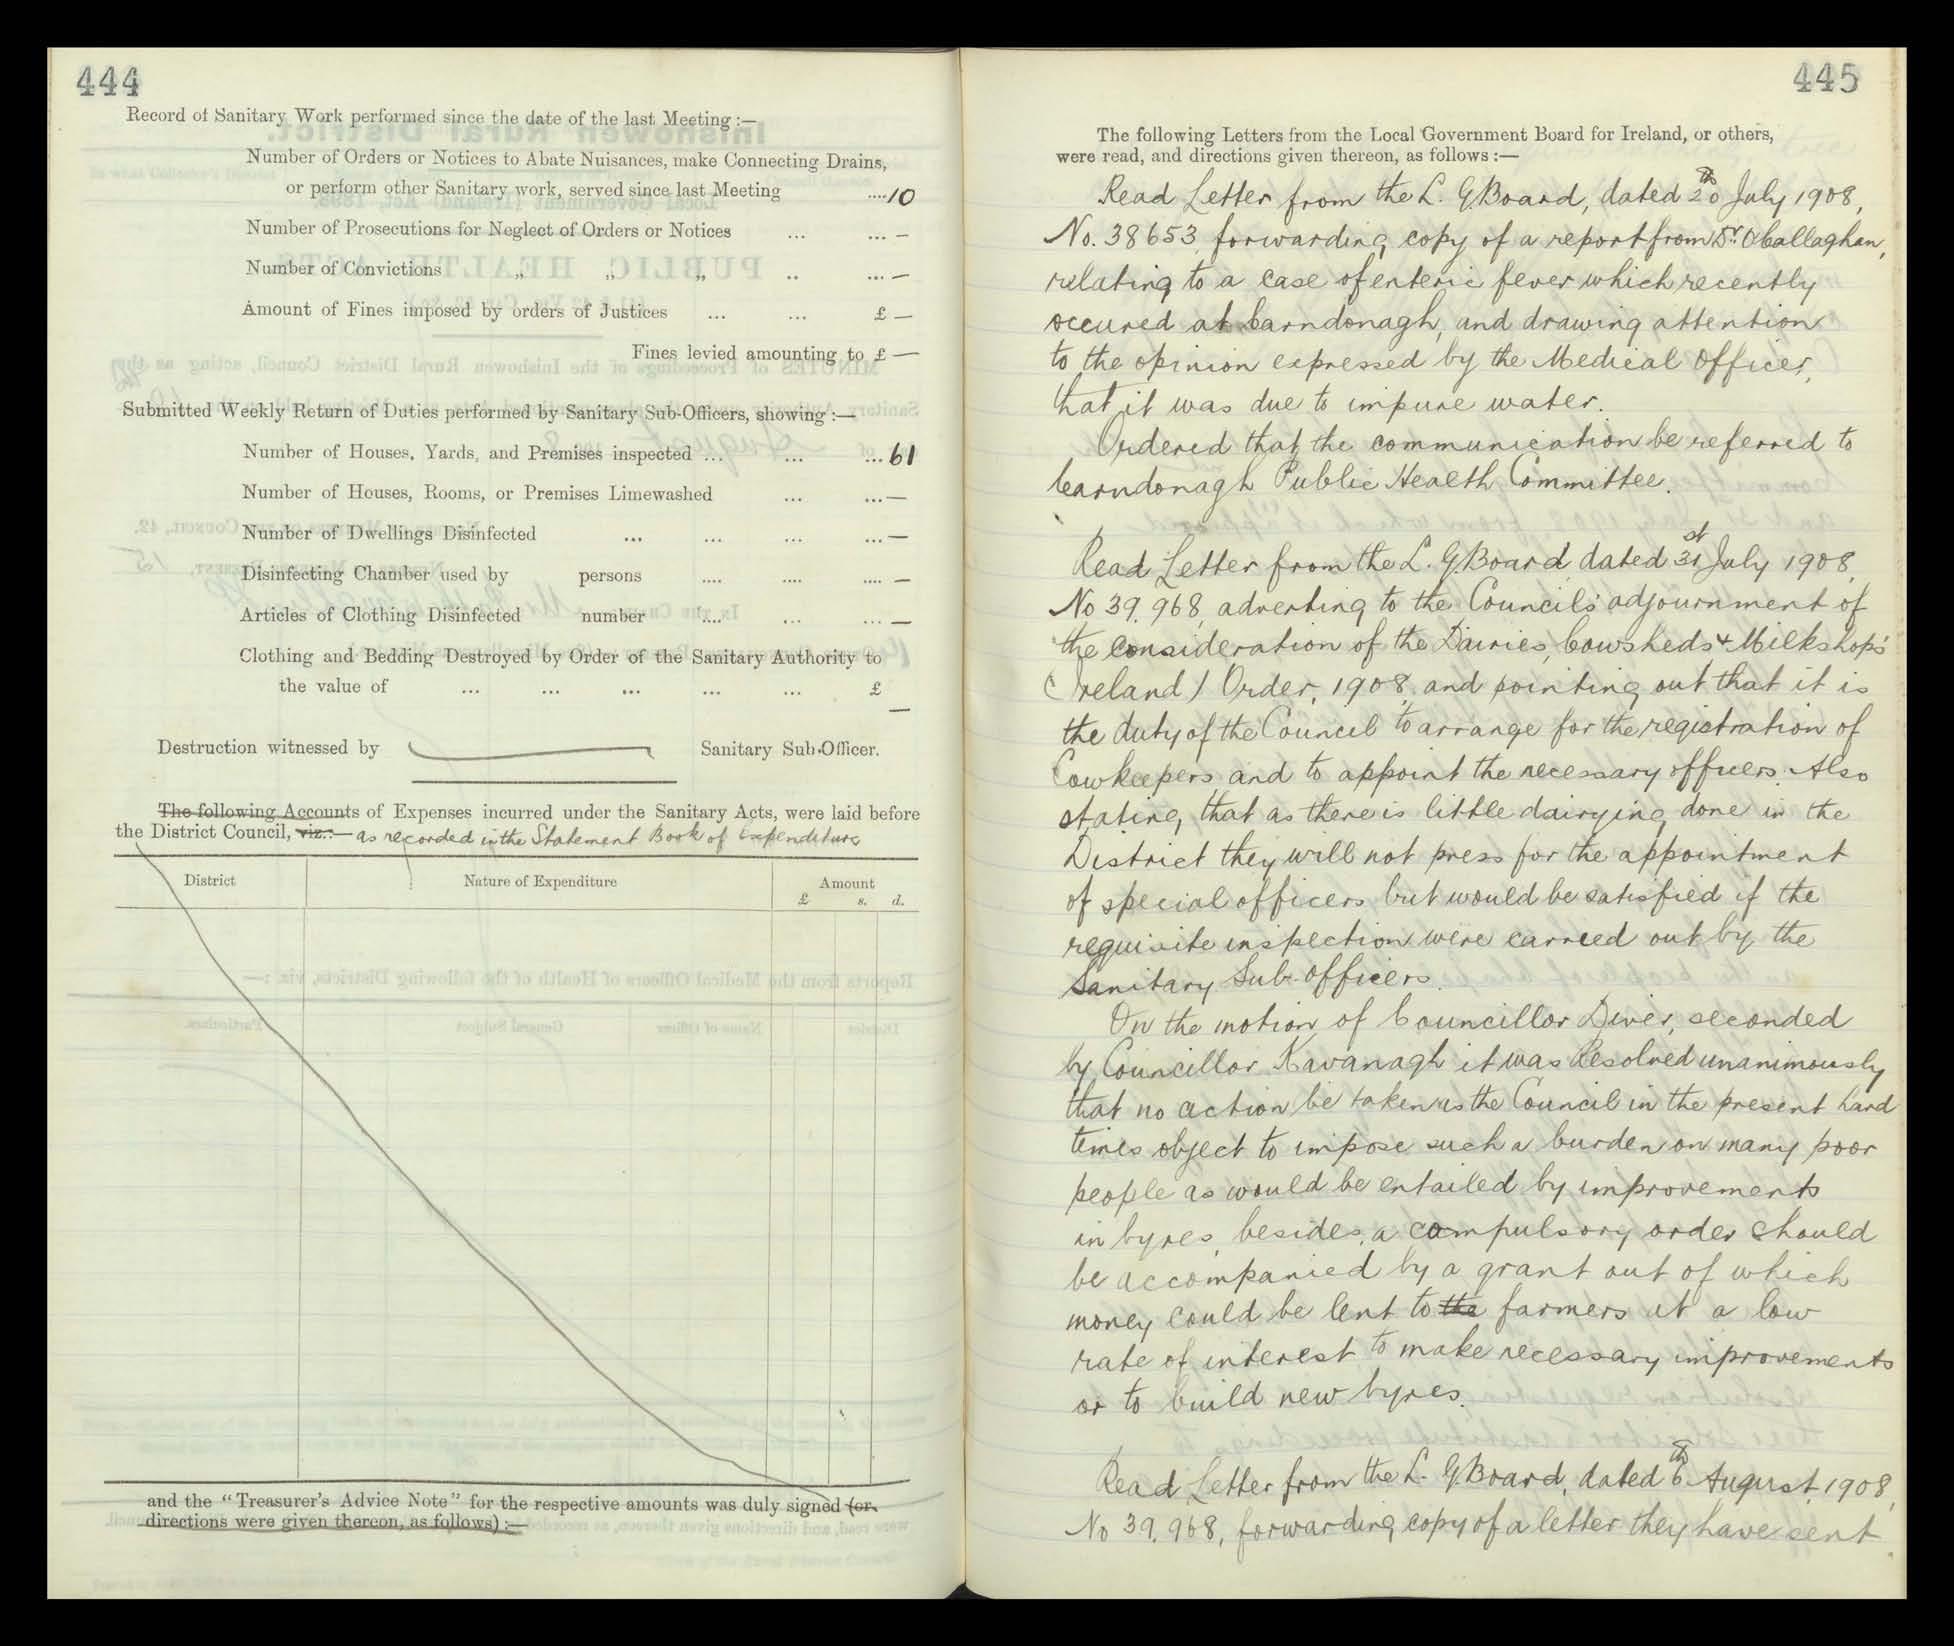 444
Record of Sanitary Work performed since the date of the last Meeting :—
Number of Orders or Notices to Abate Nuisances, make Connecting Drains,
or perform other Sanitary work, served since last Meeting .... 10
Number of Prosecutions for Neglect of Orders or Notices ... ... —
Number of Convictions „ „ „ .. ... —
Amount of Fines imposed by orders of Justices ... ... £ —
Fines levied amounting to £ —
Submitted Weekly Return of Duties performed by Sanitary Sub-Officers, showing :—
Number of Houses, Yards, and Premises inspected ... ... ... 61
Number of Houses, Rooms, or Premises Limewashed ... ... —
Number of Dwellings Disinfected ... ... ... ... —
Disinfecting Chamber used by persons .... .... .... —
Articles of Clothing Disinfected number .... ... ... —
Clothing and Bedding Destroyed by Order of the Sanitary Authority to
the value of ... ... ... ... ... £
—
Destruction witnessed by Sanitary Sub-Officer.
The following Accounts of Expenses incurred under the Sanitary Acts, were laid before
the District Council, viz.:— as recorded in the Statement Book of Expenditure
District Nature of Expenditure Amount
£ s. d.
and the "Treasurer's Advice Note" for the respective amounts was duly signed (or
directions were given thereon, as follows) :—
445
The following Letters from the Local Government Board for Ireland, or others,
were read, and directions given thereon, as follows :—
Read Letter from the L. G. Board, dated 20th July 1908,
No. 38653, forwarding copy of a report from Dr. O'Callaghan,
relating to a case of enteric fever which recently
occured at Carndonagh, and drawing attention
to the opinion expressed by the Medical Officer,
that it was due to impure water.
Ordered that the communication be referred to
Carndonagh Public Health Committee.
Read Letter from the L. G. Board dated 31st July 1908,
No 39.968, adverting to the Councils' adjournment of
the consideration of the Dairies, Cowsheds & Milkshops'
(Ireland) Order, 1908, and pointing out that it is
the duty of the Council to arrange for the registration of
Cowkeepers and to appoint the necessary officers. Also
stating, that as there is little dairying done in the
District they will not press for the appointment
of special officers but would be satisfied if the
requisite inspection were carried out by the
Sanitary Sub-officers.
On the motion of Councillor Diver, seconded
by Councillor Kavanagh it was Resolved unanimously
that no action be taken as the Council in the present hard
times object to impose such a burden on many poor
people as would be entailed by improvements
in byres, besides, a compulsory order should
be accompanied by a grant out of which
money could be lent to the farmers at a low
rate of interest to make necessary improvements
or to build new byres.
Read Letter from the L. G. Board, dated 6th August, 1908,
No 39.968, forwarding copy of a letter they have sent